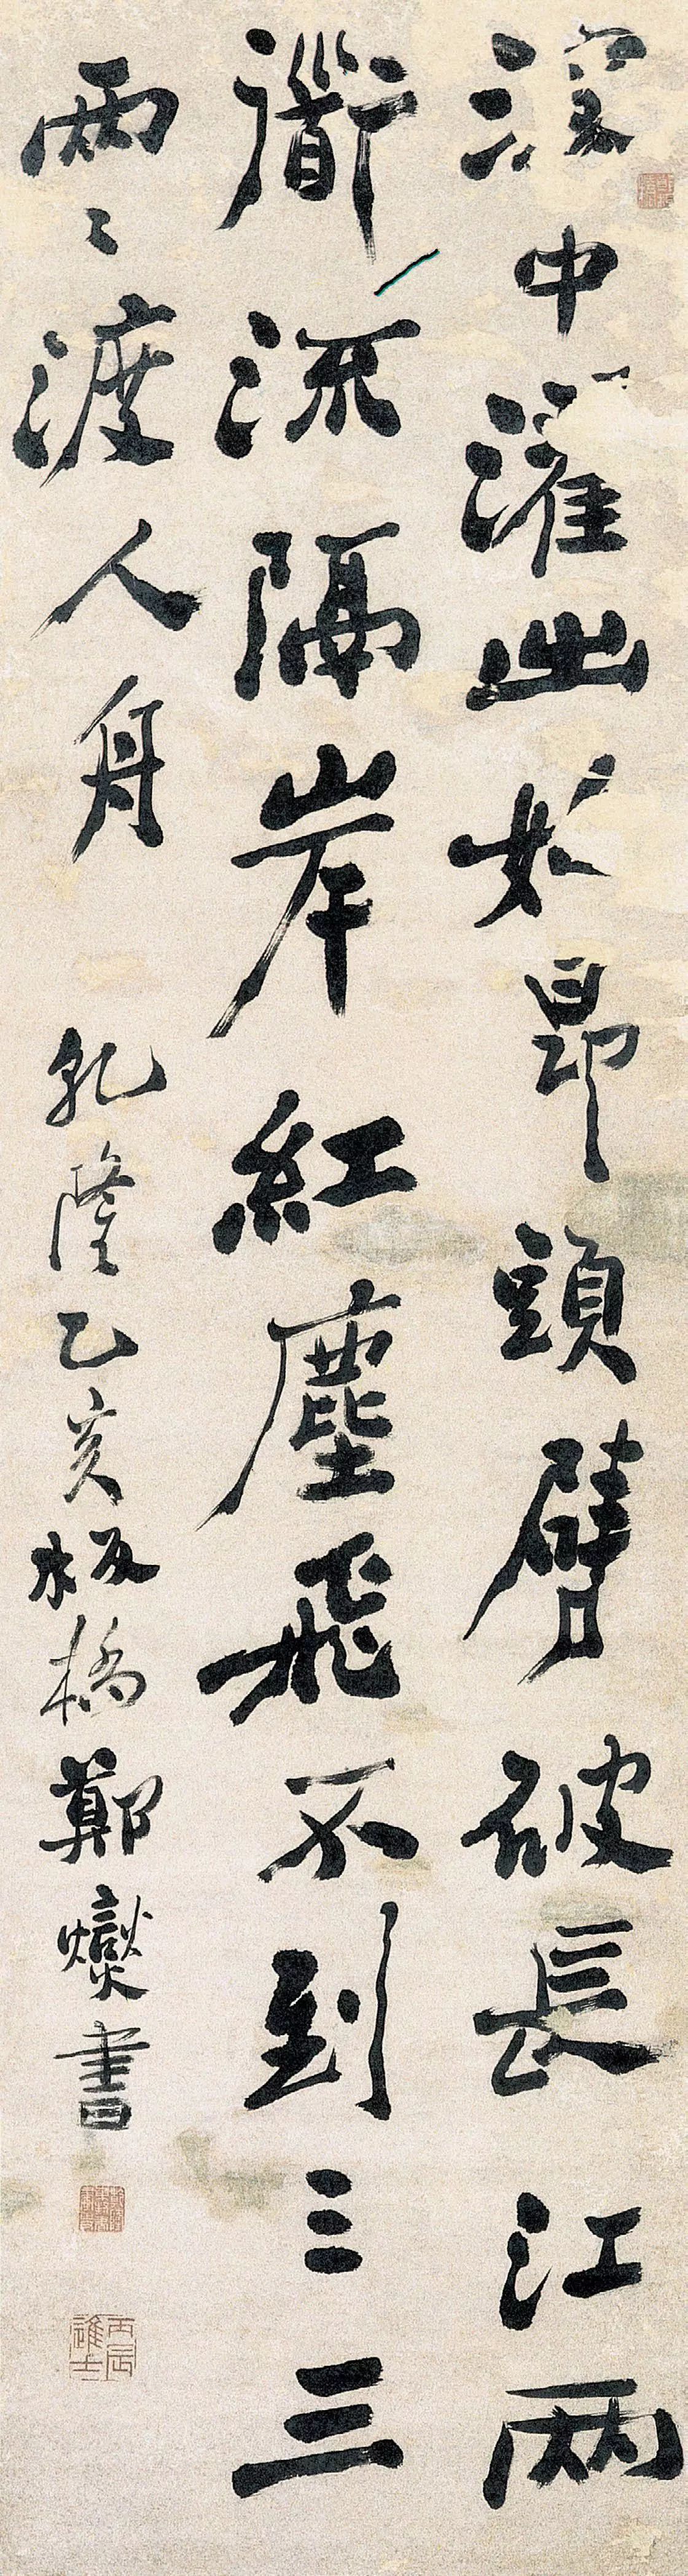 深中濯出如昂頭劈破長江兩
衜流隔岸紅塵飛不到三三
兩〻渡人舟 乾隆乙亥板橋鄭燮書
丙辰進士